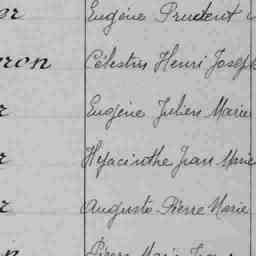 er Eugène Prudent
ron Célestin Henri Joseph
r Eugène Julien Marie
r Hyacinthe Jean Marie
r Auguste Pierre Marie
n Pierre Marie